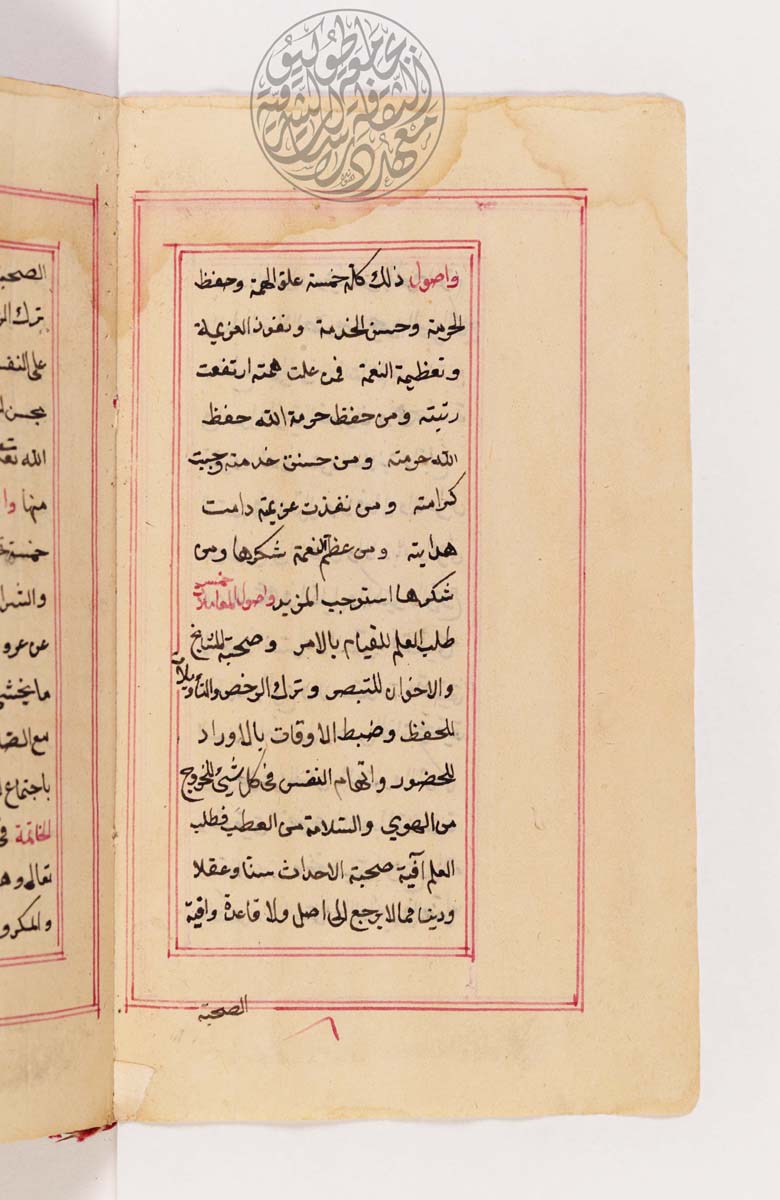 واصول ذلك كله خمسة علو الهمة وحفظ
الحرمة وحسن الخدمة ونفوذ العزيمة
وتعظيمة النعمة فمن علت همته ارتفعت
رتبته ومن حفظ حرمة الله حفظ
الله حرمته ومن حسنت خدمته وجبت
كرامته ومن نفذت عزيمته دامت
هدايته ومن عظم النعمة شكرها ومن
شكرها استوجب المزيد واصول المعاملات خمسة
طلب العلم للقيام بالامر وصحبة المشايخ
والاخوان للتبصر وترك الرخص والتأويلات
للحفظ وضبط الاوقات بالاوراد
للحضور واتهام النفس في كل شئ للخروج
من الهوي والسلامة من العطب فطلب
العلم آفية صحبة الاحداث سنا وعقلا
ودينا مما لا يرجع الى اصل ولا قاعدة وافية
الصحبة
الصحبة
على النفس
الله تعا
منها وا
خمسة
والشرا
عن عرو
ما يخشى
مع الضا
باجتماع
الخاتمة في
تعالى وه
والمكرو
جامعة طوكيو
معهد دراسات الثقافة الشرقية